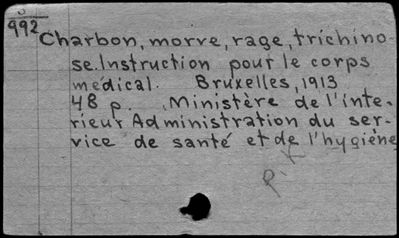 992
Charbon, morve, rage, trichino-
se. Instruction pour le corps
médical. Bruxelles, 1913
48 p. Ministère de l'inte-
rieur Administration du ser-
vice de santé et de l'hygiène